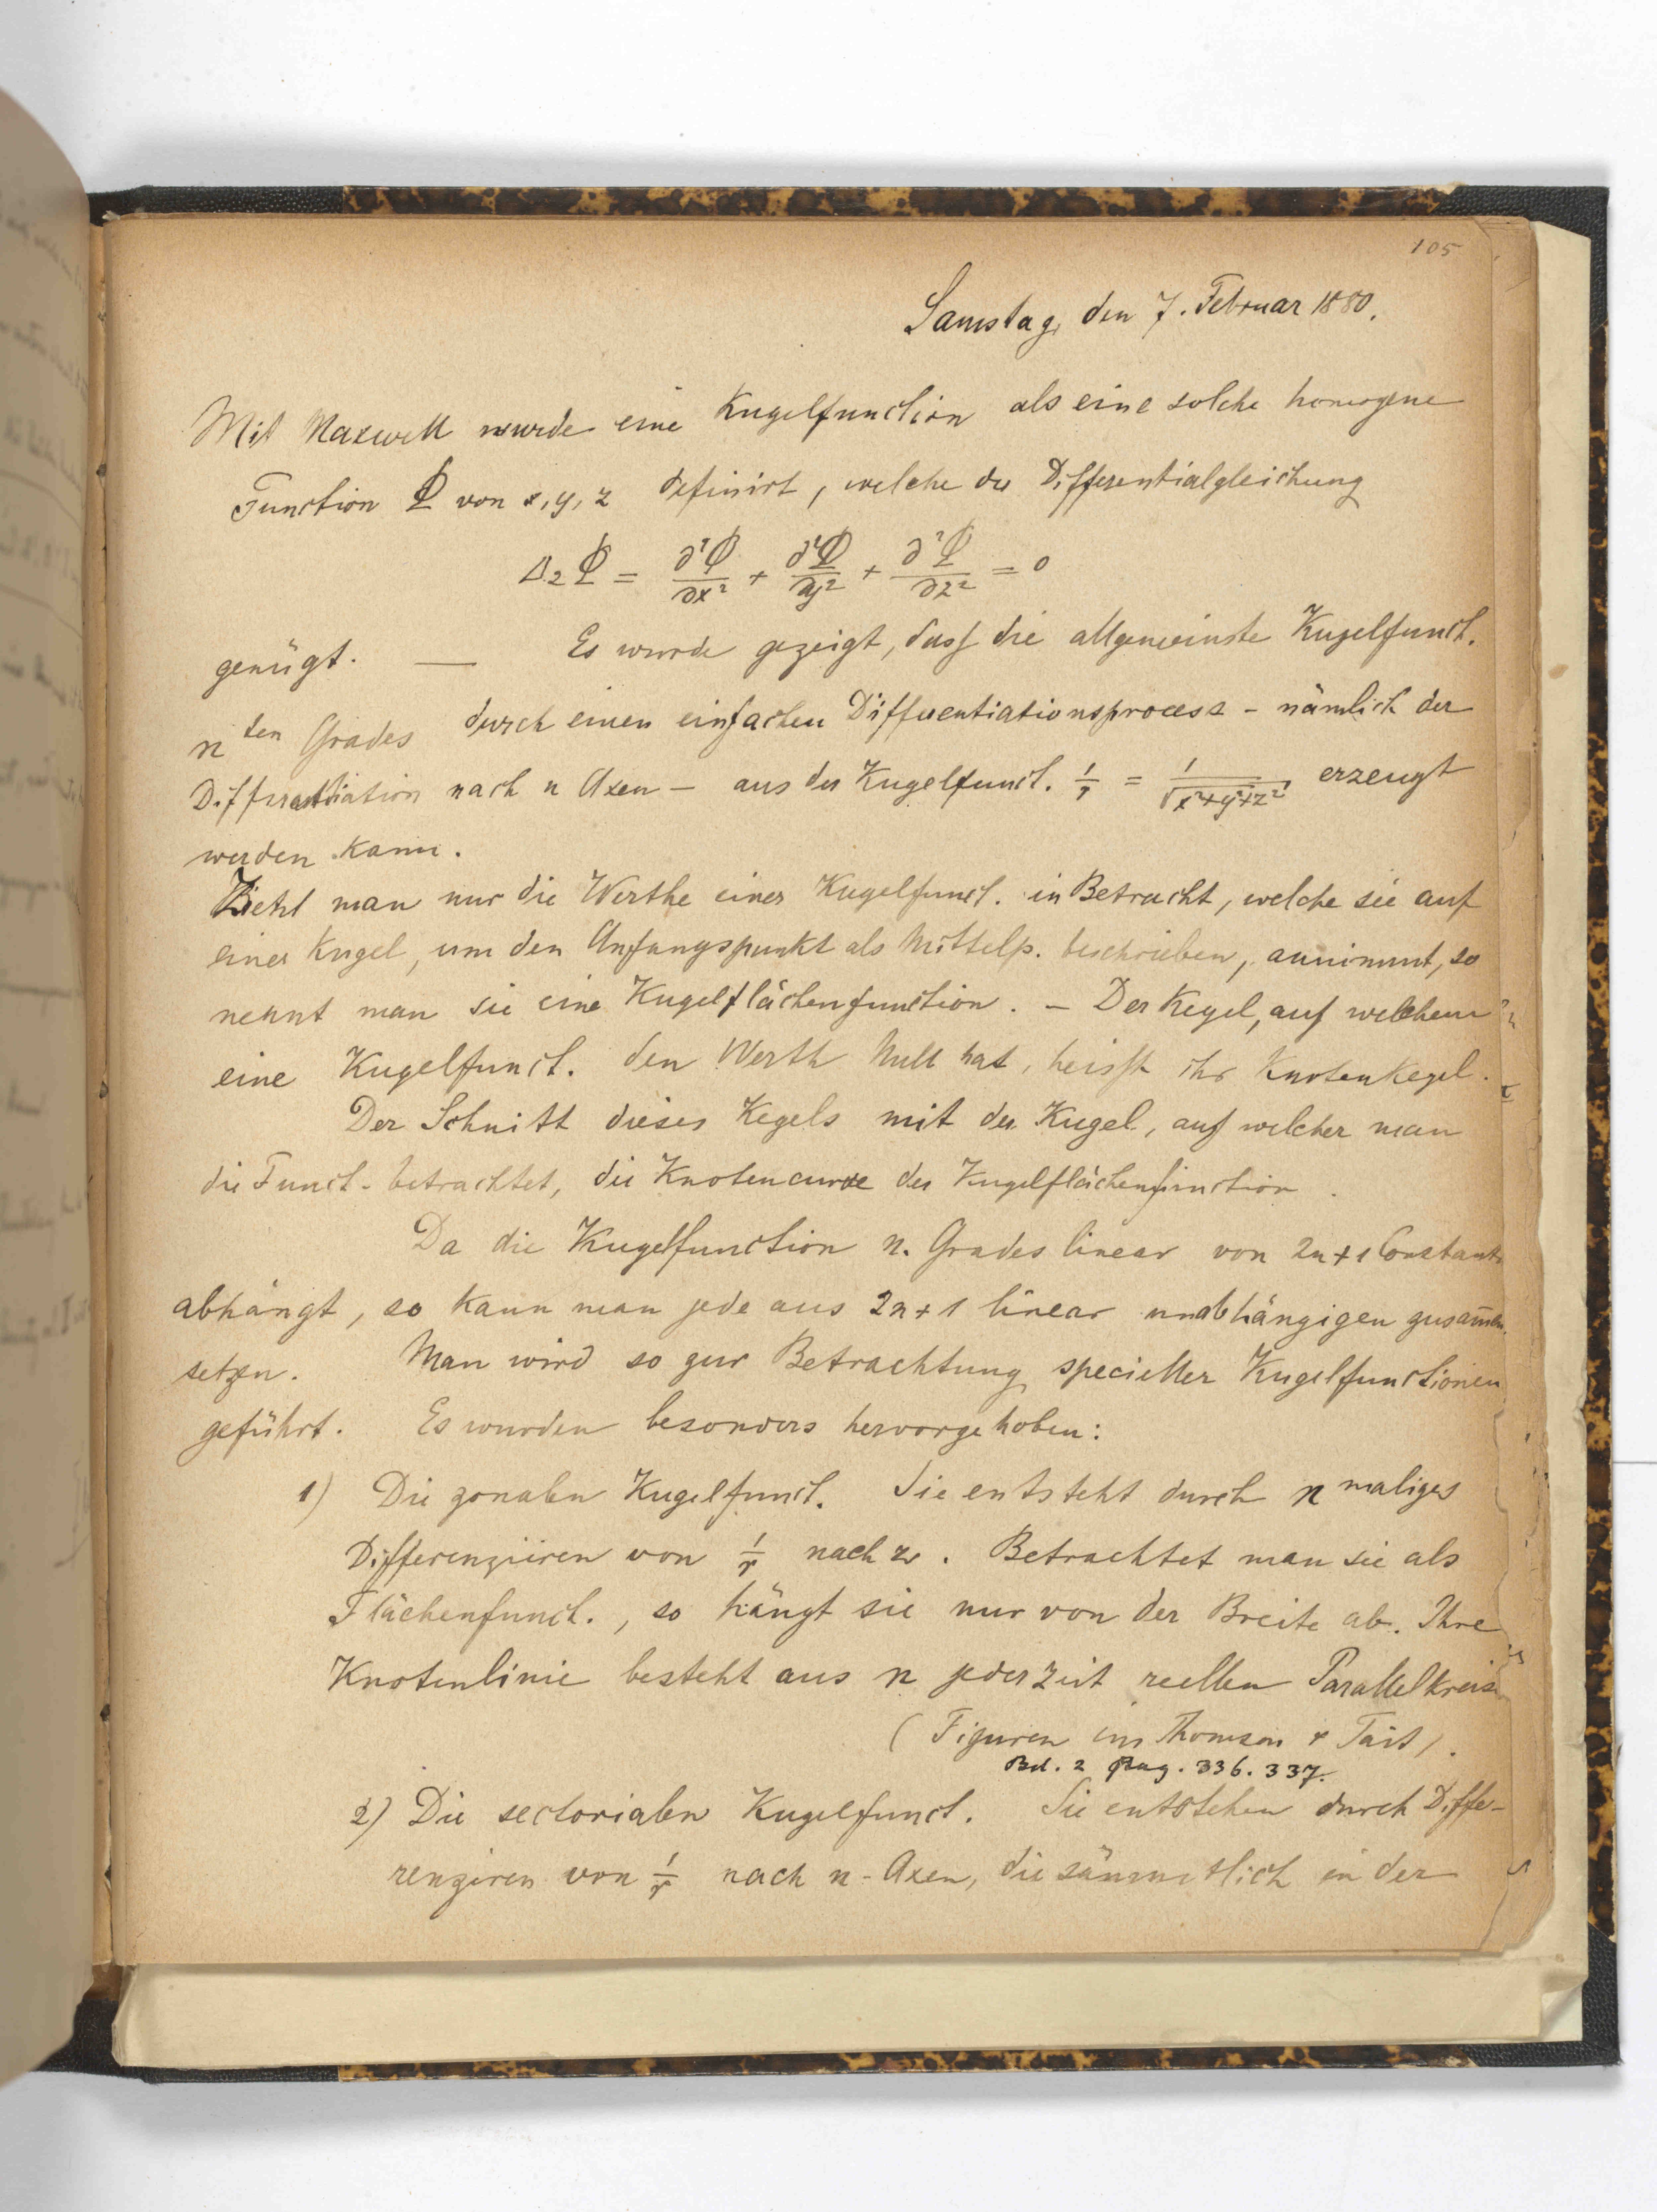 105
Samstag, den 7. Februar 1880.
Mit Maxwell wurde eine Kugelfunction als eine solche homogene
Function Φ von x, y, z definirt, welche der Differentialgleichung
Δ₂Φ = ∂²Φ/∂x² + ∂²Φ/∂y² + ∂²Φ/∂z² = 0
genügt. — Es wurde gezeigt, dass die allgemeinste Kugelfunct.
n ten Grades durch einen einfachen Differentiationsprocess - nämlich der
Differentiation nach n Axen — aus der Kugelfunct. 1/r = 1/√(x²+y²+z²) erzeugt
werden kann.
Zieht man nur die Werthe einer Kugelfunct. in Betracht, welche sie auf
einer Kugel, um den Anfangspunkt als Mittelp. beschrieben, annimmt, so
nennt man sie eine Kugelflächenfunction. - Der Kegel, auf welchem
eine Kugelfunct. den Werth Null hat, heisst ihr Knotenkegel.
Der Schnitt dieses Kegels mit der Kugel, auf welcher man
die Funct. betrachtet, die Knotencurve der Kugelflächenfunction.
Da die Kugelfunction n. Grades linear von 2n+1 Constant
abhängt, so kann man jede aus 2n+1 linear unabhängigen zusam̅en
setzen. Man wird so zur Betrachtung specieller Kugelfunctionen
geführt. Es wurden besonders hervorgehoben:
1) Die zonalen Kugelfunct. Sie entsteht durch n maliges
Differenziiren von 1/r nach z. Betrachtet man sie als
Flächenfunct., so hängt sie nur von der Breite ab. Ihre
Knotenlinie besteht aus n jederzeit reellen Parallelkreis
(Figuren im Thomson & Tait).
Bd. 2 Pag. 336. 337.
2) Die sectorialen Kugelfunct. Sie entstehen durch Diffe-
renziren von 1/r nach n-Axen, die sämmtlich in der